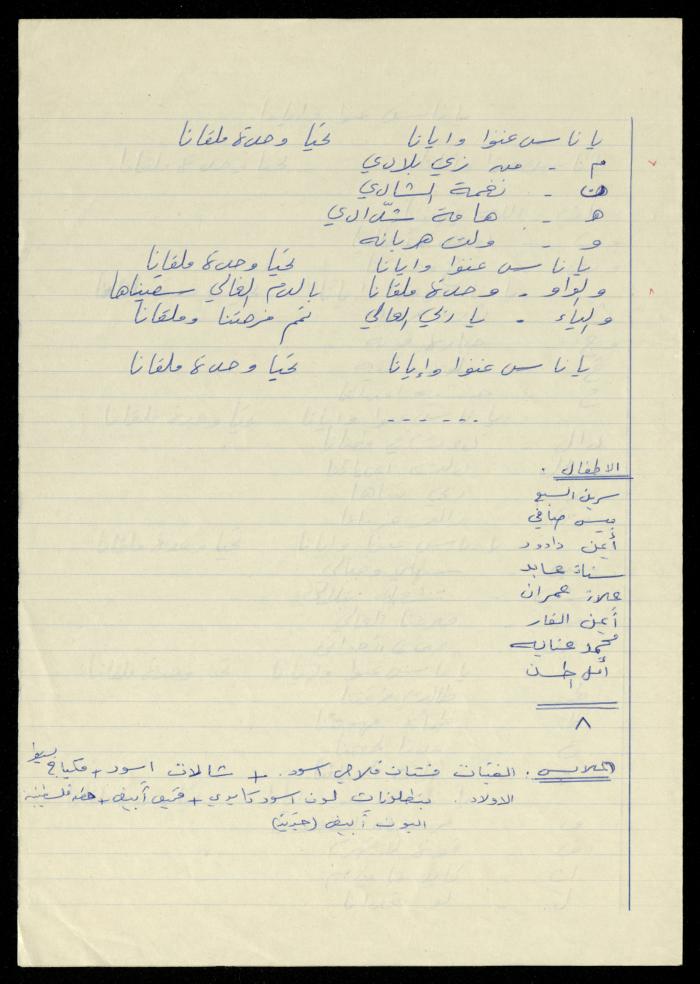 يا ناس عنوا وايانا تحيا وحدة ملقانا
م - مين زي بلادي
ن - نغمة الشادي
هـ - هامة شدّادي
و - ولت هربانه
يا ناس عنوا وايانا تحيا وحدة ملقانا
والواو - وحدة ملقانا بالدم الغالي سقيناها
والياء - يا ربي العالي تمم فرحتنا وملقانا
يا ناس عنوا وإيانا تحيا وحدة ملقانا
......
الاطفال .
سرين السبع
ميس صافي
أيمن داوود
سناء عابد
علاء عمران
أيمن الفار
محمد عنايه
أمل الحسن
٨
الملابس . الفتيات فستان فلاحي اسود . + شالات اسود + مكياج بسيط
الاولاد . بنطلونات لون اسود كابوي + قميص أبيض + حطه فلسطينية
البوت أبيض